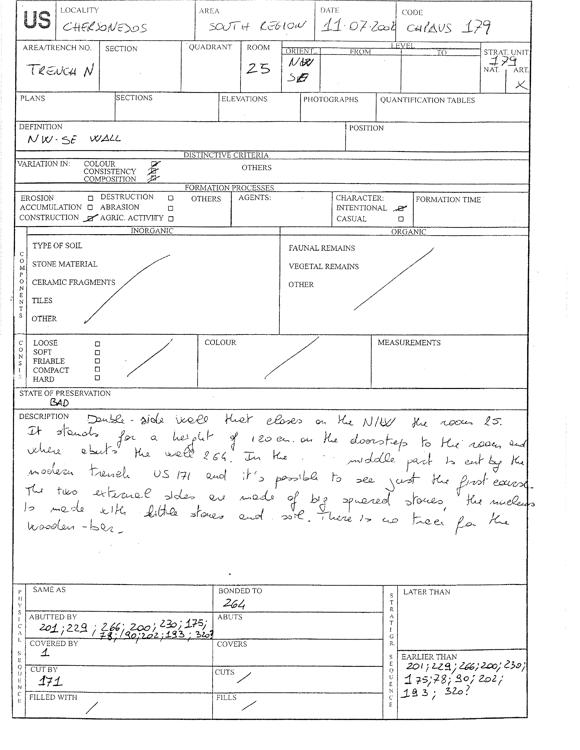 US
LOCALITY
CHERSONESOS
AREA
SOUTH REGION
DATE
11-07-2002
CODE
CHPAUS 179
AREA/TRENCH NO.
TRENCH N
SECTION
QUADRANT
ROOM
25
ORIENT.
NW
SE
LEVEL
FROM
TO
STRAT. UNIT
179
NAT. ART.
X
PLANS
SECTIONS
ELEVATIONS
PHOTOGRAPHS
QUANTIFICATION TABLES
DEFINITION
NW-SE WALL
POSITION
DISTINCTIVE CRITERIA
VARIATION IN: COLOUR
CONSISTENCY
COMPOSITION
OTHERS
FORMATION PROCESSES
EROSION DESTRUCTION
ACCUMULATION ABRASION
CONSTRUCTION AGRIC. ACTIVITY
OTHERS
AGENTS:
CHARACTER:
INTENTIONAL
CASUAL
FORMATION TIME
COMPONENTS
INORGANIC
TYPE OF SOIL
STONE MATERIAL
CERAMIC FRAGMENTS
TILES
OTHER
ORGANIC
FAUNAL REMAINS
VEGETAL REMAINS
OTHER
CONSIS
LOOSE
SOFT
FRIABLE
COMPACT
HARD
COLOUR
MEASUREMENTS
STATE OF PRESERVATION
BAD
DESCRIPTION Double-side wall that closes on the N/W the room 25.
It stands for a height of 120 cm. on the doorstep to the room and
where abuts the wall 264. In the middle part is cut by the
modern trench US 171 and it's possible to see just the first course.
The two external sides are made of big squared stones, the nucleus
is made with little stones and soil. There is no trace for the
wooden-bar.
PHYSICAL SEQUENCE
SAME AS
BONDED TO
264
ABUTTED BY
201; 229; 266; 200; 230; 175;
78; 90; 202; 193; 320?
ABUTS
COVERED BY
1
COVERS
CUT BY
171
CUTS
FILLED WITH
FILLS
STRATIGR. SEQUENCE
LATER THAN
EARLIER THAN
201; 229; 266; 200; 230;
175; 78; 90; 202;
193; 320?